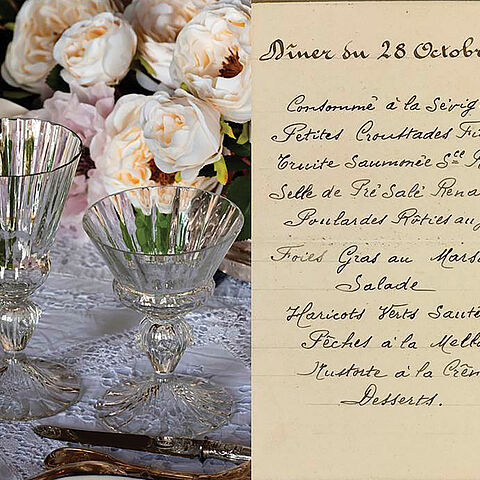 Dîner du 28 Octobr
Consommé à la Sévig
Petites Croustades Fi
Truite Saumonée Sce R
Selle de Pré Salé Rena
Poulardes Rôties au
Foies Gras au Mars
Salade
Haricots Verts Saut
Pêches à la Melb
à la Crèm
Desserts.